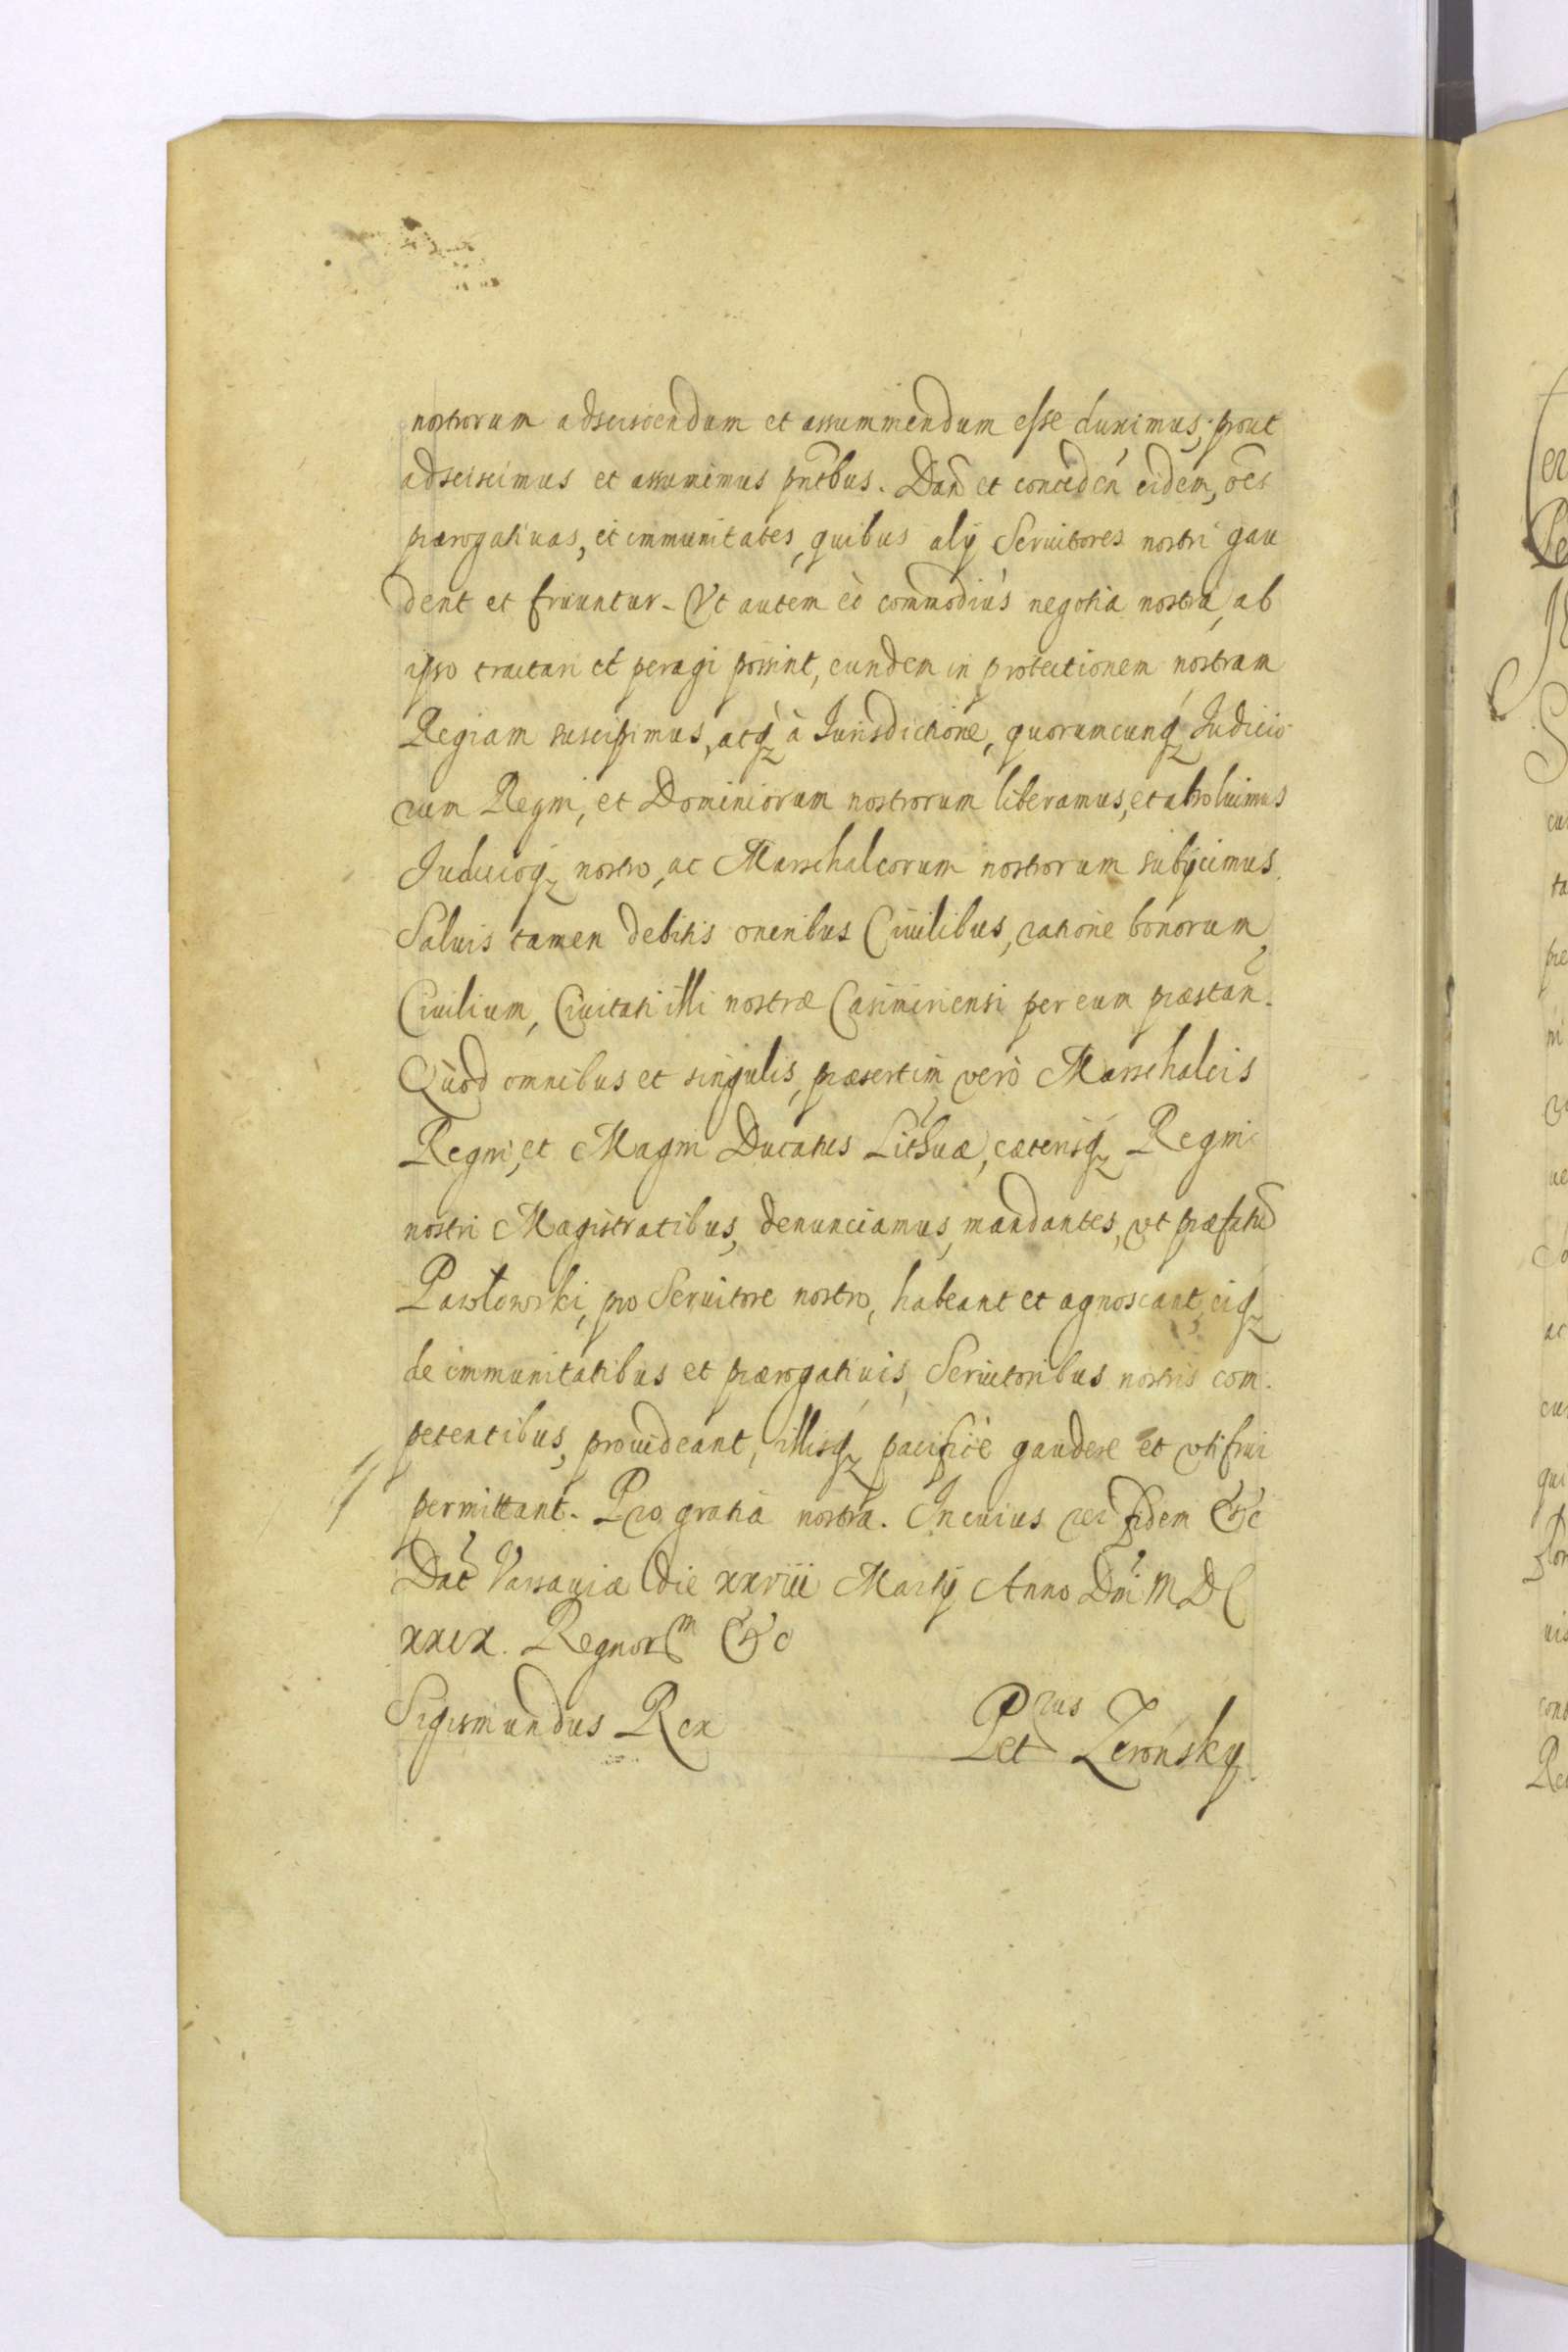 nostrorum adsciscendum et assummendum esse duximus, prout
adsciscimus et assumimus pñtbus. Dañ et conceden eidem, oẽs
prærogatiuas, et immunitates, quibus alÿ Seruitores nostri gau
dent et fruuntur. Vt autem eò commodiùs negotia nostra, ab
ipso tractari et peragi possint, eundem in protectionem nostram
Regiam suscipimus, atqꝫ à Jurisdictione, quorumcunqꝫ Judicio
rum Regni, et Dominiorum nostrorum liberamus, et absoluimus
Judicioqꝫ nostro, ac Marschalcorum nostrorum subÿcimus.
Saluis tamen debitis oneribus Ciuilibus, ratione bonorum
Ciuilium, Ciuitati illi nostræ Casimiriensi per eum præstan.
Quod omnibus et singulis, præsertim verò Marschalcis
Regni, et Magni Ducatus Lithuæ, cæterisqꝫ Regni
nostri Magistratibus, denunciamus, mandantes, vt præfatũ
Pawłowski, pro Seruitore nostro, habeant et agnoscant, eiqꝫ
de immunitatibus et prærogatiuis, Seruitoribus nostris com
petentibus, prouideant, illisqꝫ pacificè gaudere et vti frui
permittant. Pro gratia nostra. In cuius rei fidem &c
Dat Varsauiæ die xxviii Martÿ Anno Dñi MDC
xxix. Regnorm &c
Sigismundus Rex
Petrus Zeronsky